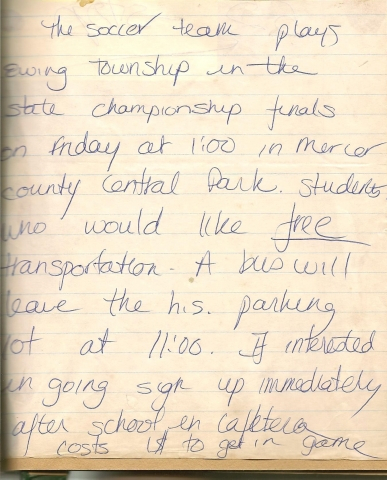 The soccer team plays
Ewing Township in the
state championship finals
on Friday at 1:00 in Mercer
county Central Park. Students
who would like free
transportation. A bus will
leave the h.s. parking
lot at 11:00. If interested
in going sign up immediately
after school in cafetera
costs to get in game